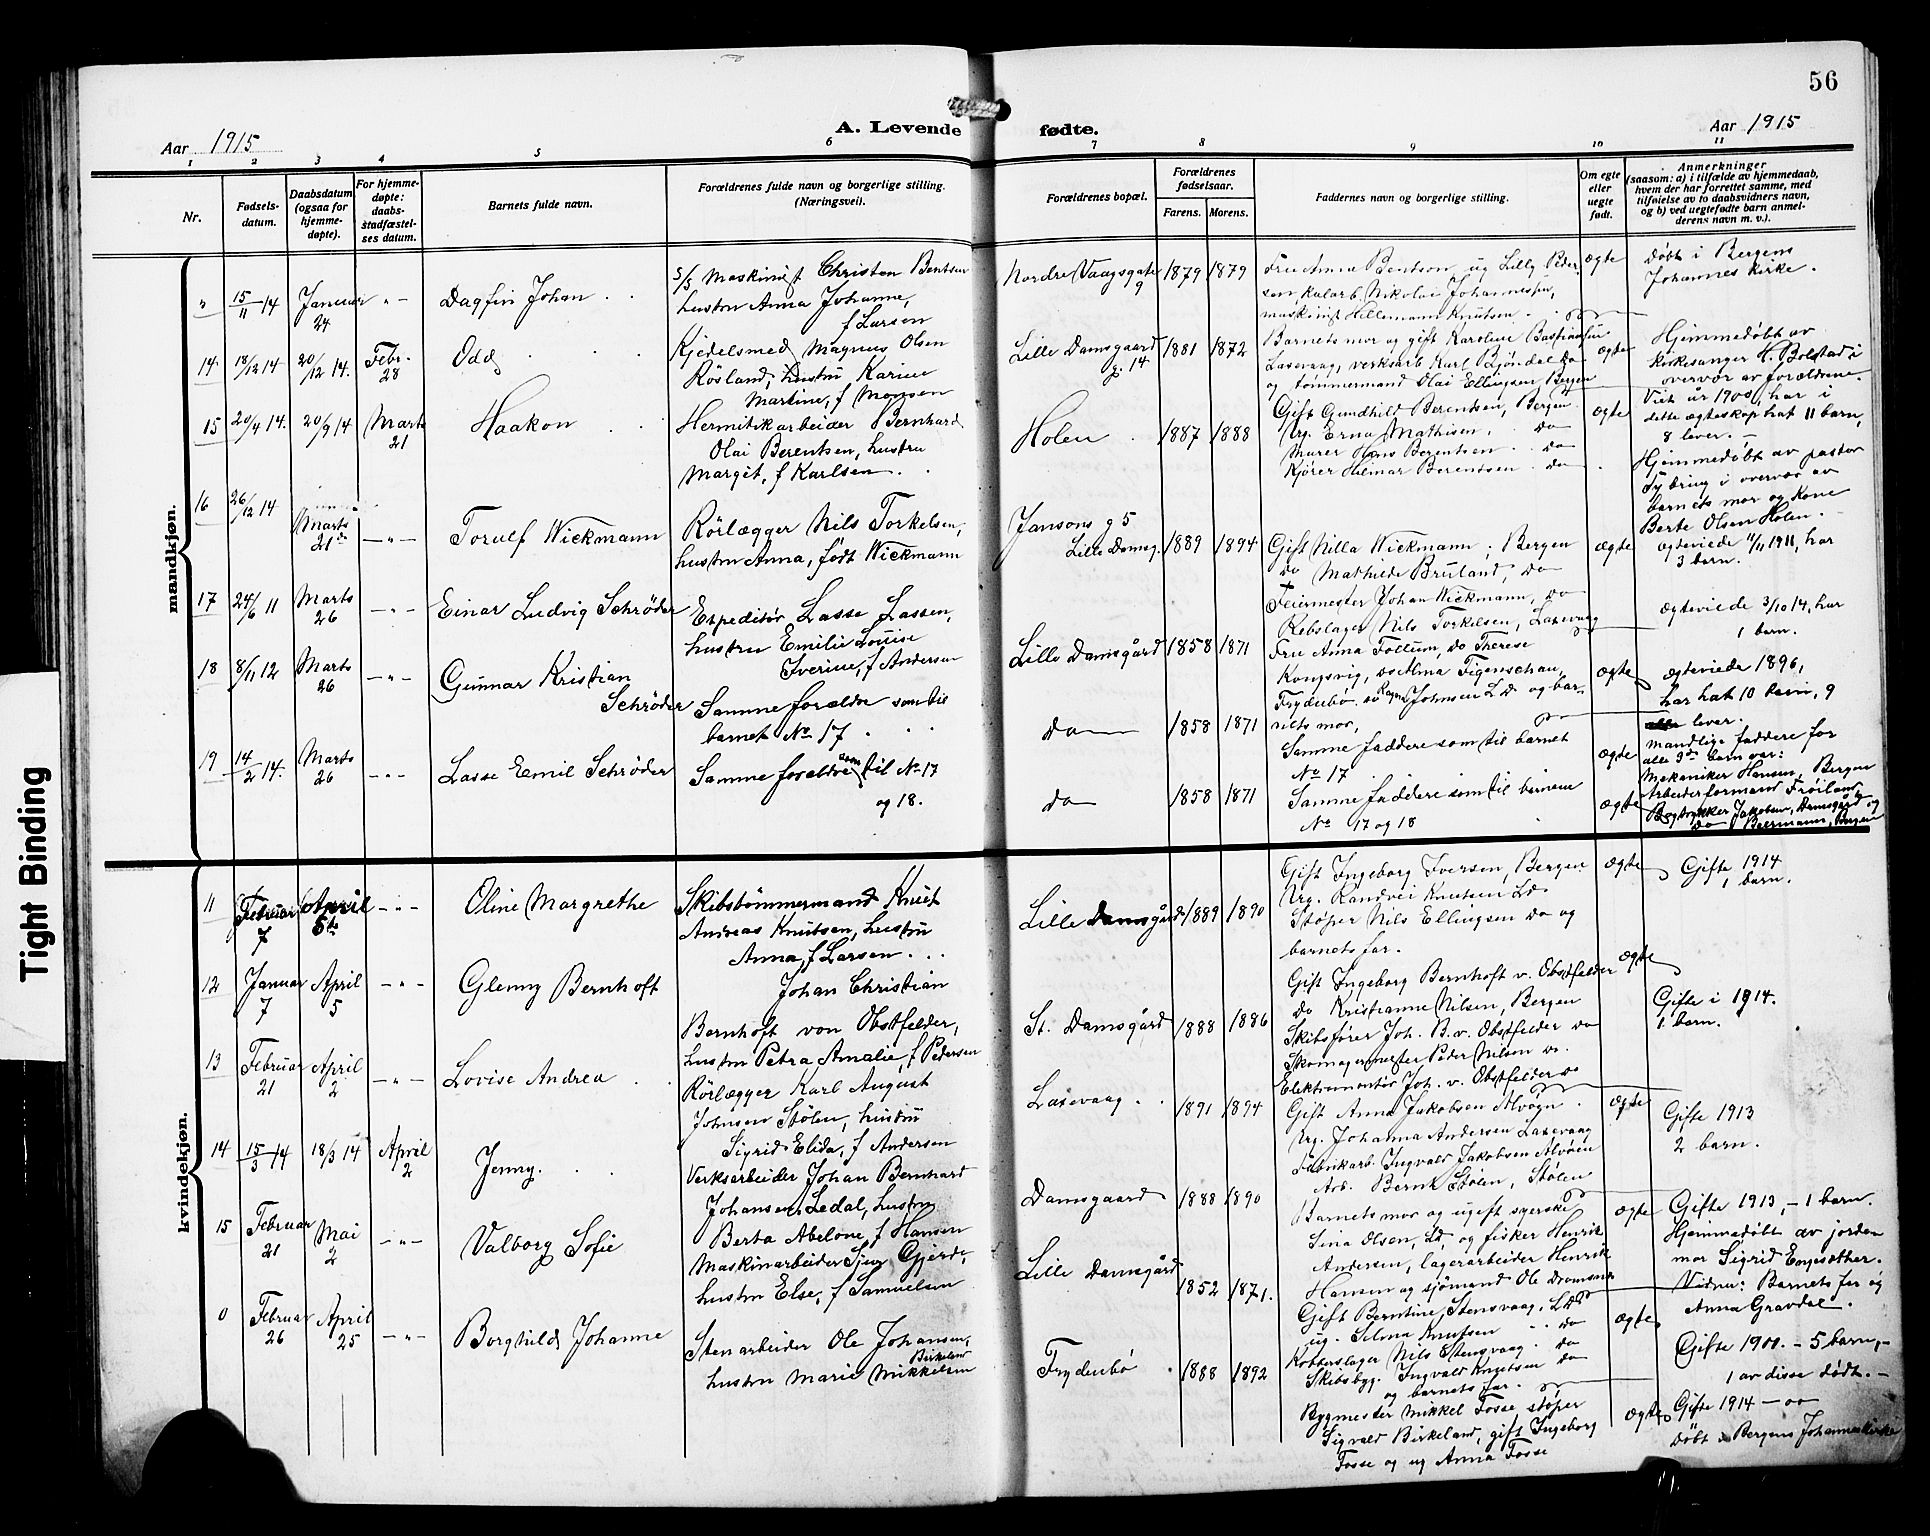 56
Aar 1915
A. Levende fødte.
Aar 1915
1 2 3 4 5 6 7 8 9 10 11
Nr.
Fødsels-
datum.
Daabsdatum
(ogsaa for
hjemme-
døpte).
For hjemme-
døpte:
daabs-
stadfæstel-
ses datum.
Barnets fulde navn.
Forældrenes fulde navn og borgerlige stilling.
(Næringsvei).
Forældrenes bopæl.
Forældrenes
fødselsaar.
Farens. Morens.
Faddernes navn og borgerlige stilling.
Om egte
eller
uegte
født.
Anmerkninger
(saasom: a) i tilfælde av hjemmedaab,
hvem der har forrettet samme, med
tilføielse av to daabsvidners navn,
og b) ved uegtefødte barn anmel-
derens navn m. v.).
mandkjøn.
" 15/11 14 Januar 24 - " - Dagfin Johan
S/S Maskinist Christen Bentsen
hustru Anna Johanne,
f Larsen
Nordre Vaagsgate 9 1879 1879
Fru Anna Bentson, ug Lilly Peder
sen, kularb. Nikolai Johannessen,
maskinist Hillemann Knutsen
ægte
Døbt i Bergens
Johannes Kirke.
14 18/12 14 20/12 14. Febr. 28 Odd
Kjedelsmed Magnus Olsen
Røsland, hustru Karine
Martine, f Monsen
Lille Damsgaard g. 14 1881 1872
Barnets mor og gift Karoline Bastiansen
Laxevaag, verksarb Karl Bjøndal do
og tømmermand Olai Ellingsen Bergen
ægte
Hjemmedøbt av
kirkesanger H. Bolstad i
overvær av forældrene.
Viet år 1900, har i
dette ægteskap hat 11 barn,
8 lever. -
15 20/4 14. 20/9 14 Marts 21 Haakon
Hermitskarbeider Bernhard
Olai Berentsen, hustru
Margit, f Karlsen
Holen 1887 1888
Gift Gundhild Berentsen, Bergen
Ug. Erna Mathisen. do
Murer Hans Berentsen do
Kjører Helmar Berentsen do
ægte
Hjemmedøbt av pastor
Tybring i overvær av
barnets mor og Kone
Berte Olsen Holen. -
16 26/12 14 Marts 21de - " - Torulf Wickmann
Rørlægger Nils Torkelsen,
hustru Anna, født Wickmann
Jansons g 5
Lille Damsg. 1889 1894
Gift Nilla Wickmann, Bergen
do Mathilde Bruland, do
Feiermester Johan Wickmann, do
Rebslager Nils Torkelsen, Laxevaag
ægte
Ægteviede 11/11 1911, har
3 barn.
17 24/6 11 Marts 26 - " - Einar Ludvig Schrøder
Expeditør Lasse Lassen,
hustru Emilie Louise
Iverine, f Andersen
Lille Damsgård 1858 1871
Fru Anna Follum, do Therese
Kongsvig, do Alma Figenschau,
Frydenbø. do Ragna Johnsen L.D. og bar
nets mor,
ægte
Ægteviede 3/10 14, har
1 barn.
18 8/11 12 Marts 26 - " - Gunnar Kristian
Schrøder
Samme forældre som til
barnet No 17
do 1858 1871
Samme faddere som til barnet
No 17
ægte
Ægteviede 1896,
har hat 10 barn, 9
lever.
19 14/2 14. Marts 26 - " - Lasse Emil Schrøder
Samme forældre som til No 17
og 18.
do 1858 1871
Samme faddere som til barnene
No 17 og 18
ægte
Mandlige faddere for
alle 3de barn var:
Mekaniker Hansen, Bergen
Arbeiderformand Frøiland
Bogtrykker Jakobsen, Damsgård og
do Beermann, Bergen
kvindekjøn.
11 Februar 7 April 5te - " - Oline Margrethe
Skibstømmermand Knut
Andreas Knutsen, hustru
Anna, f Larsen
Lille Damsgård 1889 1890
Gift Ingeborg Iversen, Bergen
Ug. Randvei Knutsen L.D.
Støper Nils Ellingsen do og
barnets far.
ægte
Gifte 1914
1 barn.
12 Januar 7 April 5 - " - Glenny Bernhoft
Johan Christian
Bernhoft von Obstfelder,
hustru Petra Amalie, f Pedersen
St. Damsgård 1888 1886
Gift Ingeborg Bernhoft v. Obstfelder
do Kristianne Nilsen, Bergen
Skibsfører Joh. B. v. Obstfelder do
Skomagermester Peder Nilsen do.
Elektromontør Joh. v. Obstfelder do
ægte
Gifte i 1914.
1 barn.
13 Februar 21 April 2 - " - Lovise Andrea
Rørlægger Karl August
Johnsen Stølen, hustru
Sigrid Elida, f Andersen
Laxevaag 1891 1894
Gift Anna Jakobsen Alvøen
Ug. Johanna Andersen Laxevaag
Fabrikarb. Ingvald Jakobsen Alvøen
Arb. Bernt Stølen, Stølen
ægte
Gifte 1913
2 barn.
14 15/3 14 18/3 14 April 2 Jenny
Verksarbeider Johan Bernhard
Johansen Ledal, hustru
Berta Abelone, f Hansen
Damsgaard 1888 1890
Barnets mor og ugift syerske
Sina Olsen, L.D. og fisker Henrik
Andersen, lagerarbeider Henrik
Hansen og sjömand Ole Dromsnes
ægte
Gifte 1913, - 1 barn.
Hjemmedøbt av jorden
mor Sigrid Engesæther.
Vidner: Barnets far og
Anna Gravdal.
15 Februar 21 Mai 2 - " - Valborg Sofie
Maskinarbeider Sjur Gjerde,
hustru Else, f Samuelsen
Lille Damsgård 1852 1871.
Gift Berntine Stensvaag, L.D.
ug. Selma Knutsen do
Kobberslager Nils Stensvaag do
Skibsbyg. Ingvald Knutsen do
og barnets far.
ægte
Gifte 1900. - 5 barn, -
1 av disse dødt. -
0 Februar 26 April 25 - " - Borghild Johanne
Stenarbeider Ole Johansen
Birkeland
hustru Marie Mikkelsen
Frydenbø 1888 1892
Bygmester Mikkel Fosse støper
Sigvald Birkeland, gift Ingeborg
Fosse og ug Anna Fosse
ægte
Gifte 1914 - oo
Døbt i Bergens Johanneskirke
Tight Binding